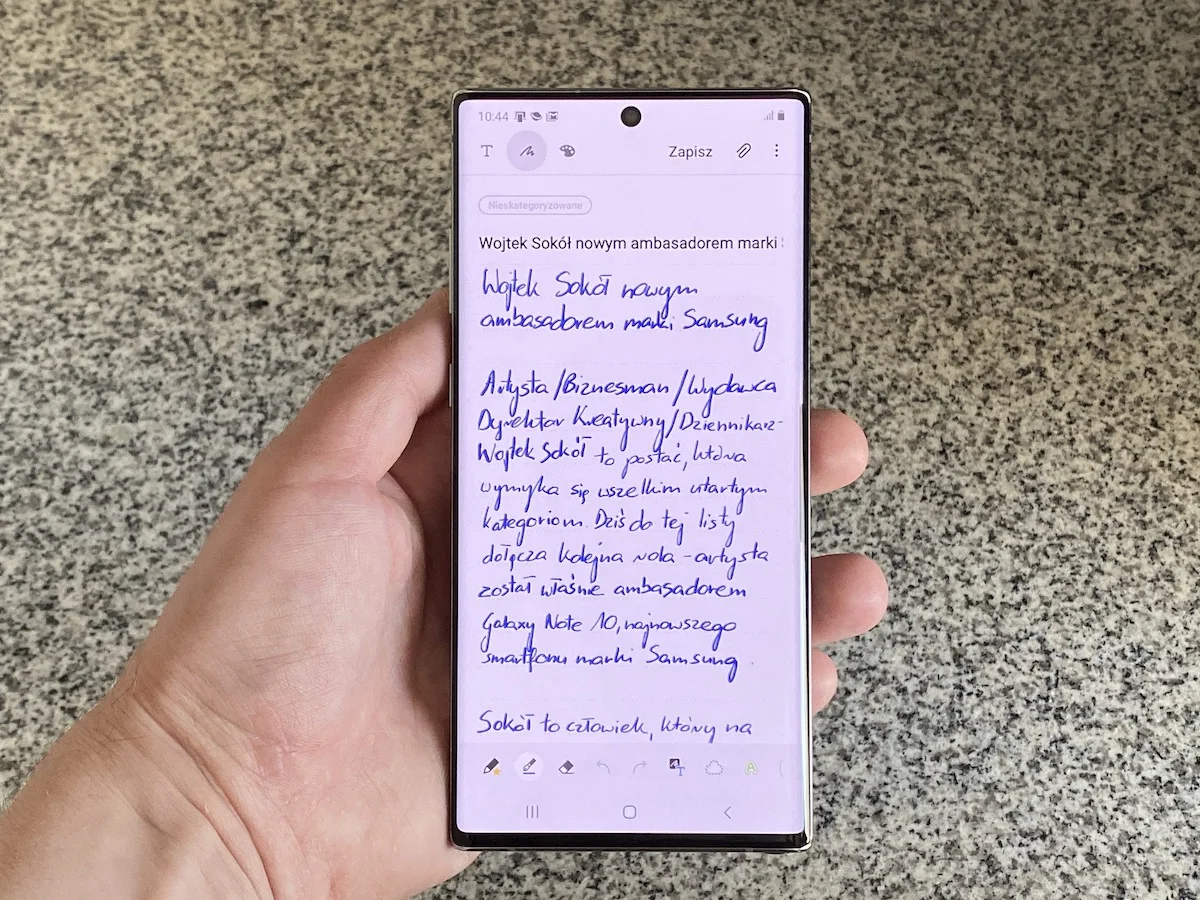 10:44
T
Zapisz
Nieskategoryzowane
Wojtek Sokół nowym ambasadorem marki
Wojtek Sokół nowym
ambasadorem marki Samsung
Artysta/Biznesman/Wydawca
Dyrektor Kreatywny/Dziennikarz-
Wojtek Sokół to postać, która
wymyka się wszelkim utartym
kategoriom. Dziś do tej listy
dołącza kolejna rola - artysta
został właśnie ambasadorem
Galaxy Note 10, najnowszego
smartfonu marki Samsung.
Sokół to człowiek, który na
T
A